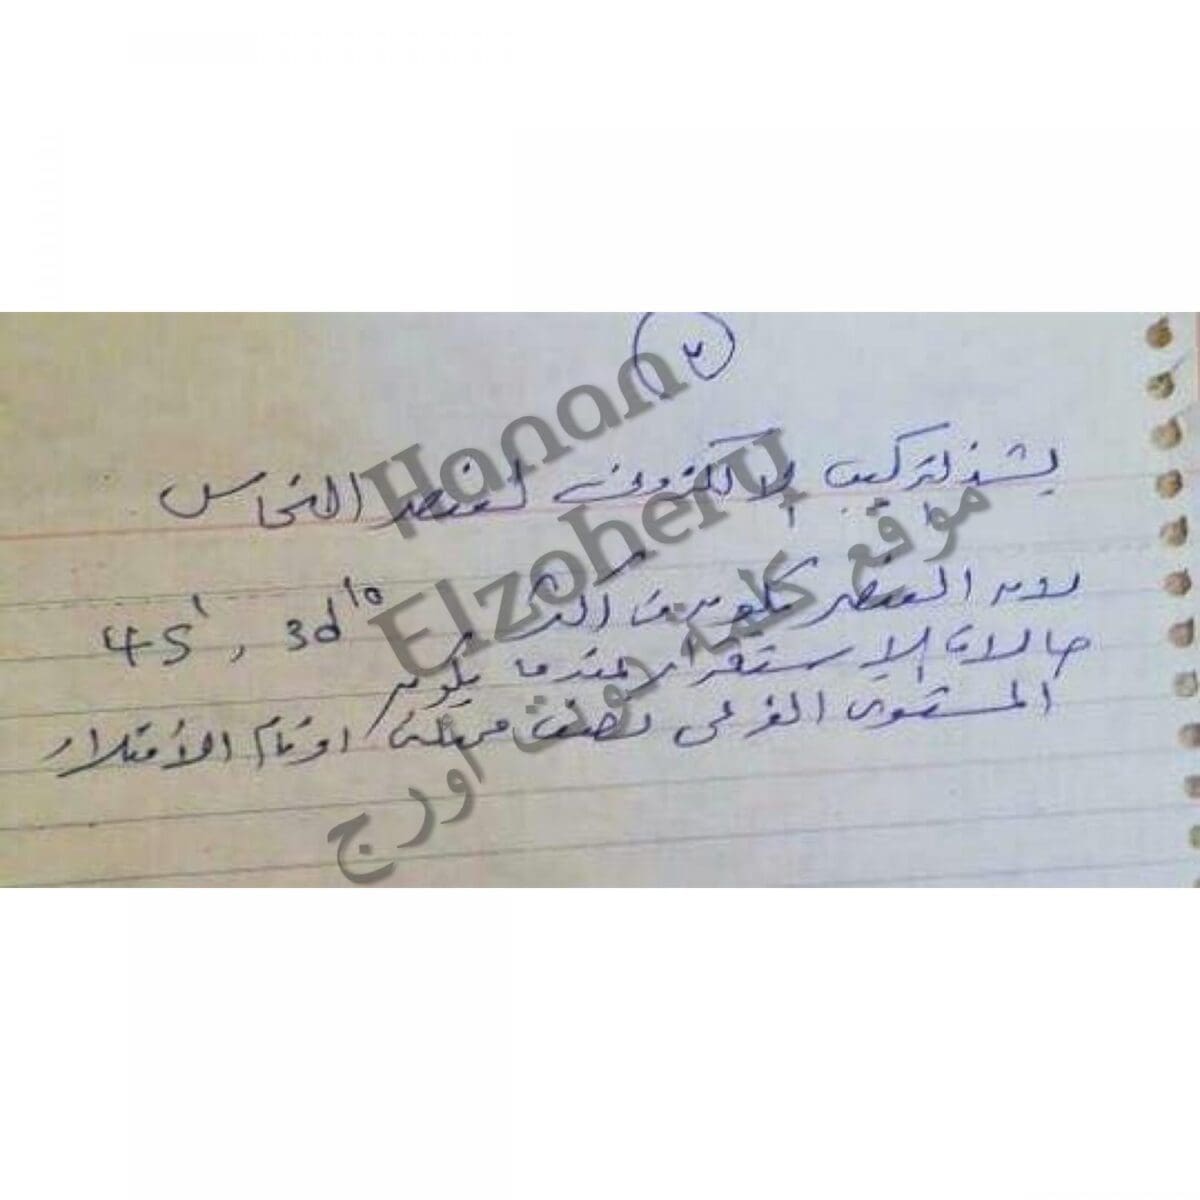 ٢
يشذ تركيب الالكترونى لعنصر النحاس
لان العنصر يكون فى اكثر 4S¹, 3d¹⁰
حالات الاستقرار عندما يكون
المستوى الفرعى نصف ممتلئ او تام الأمتلاء
Hanan
Elzohery
موقع كلية هوت اورج